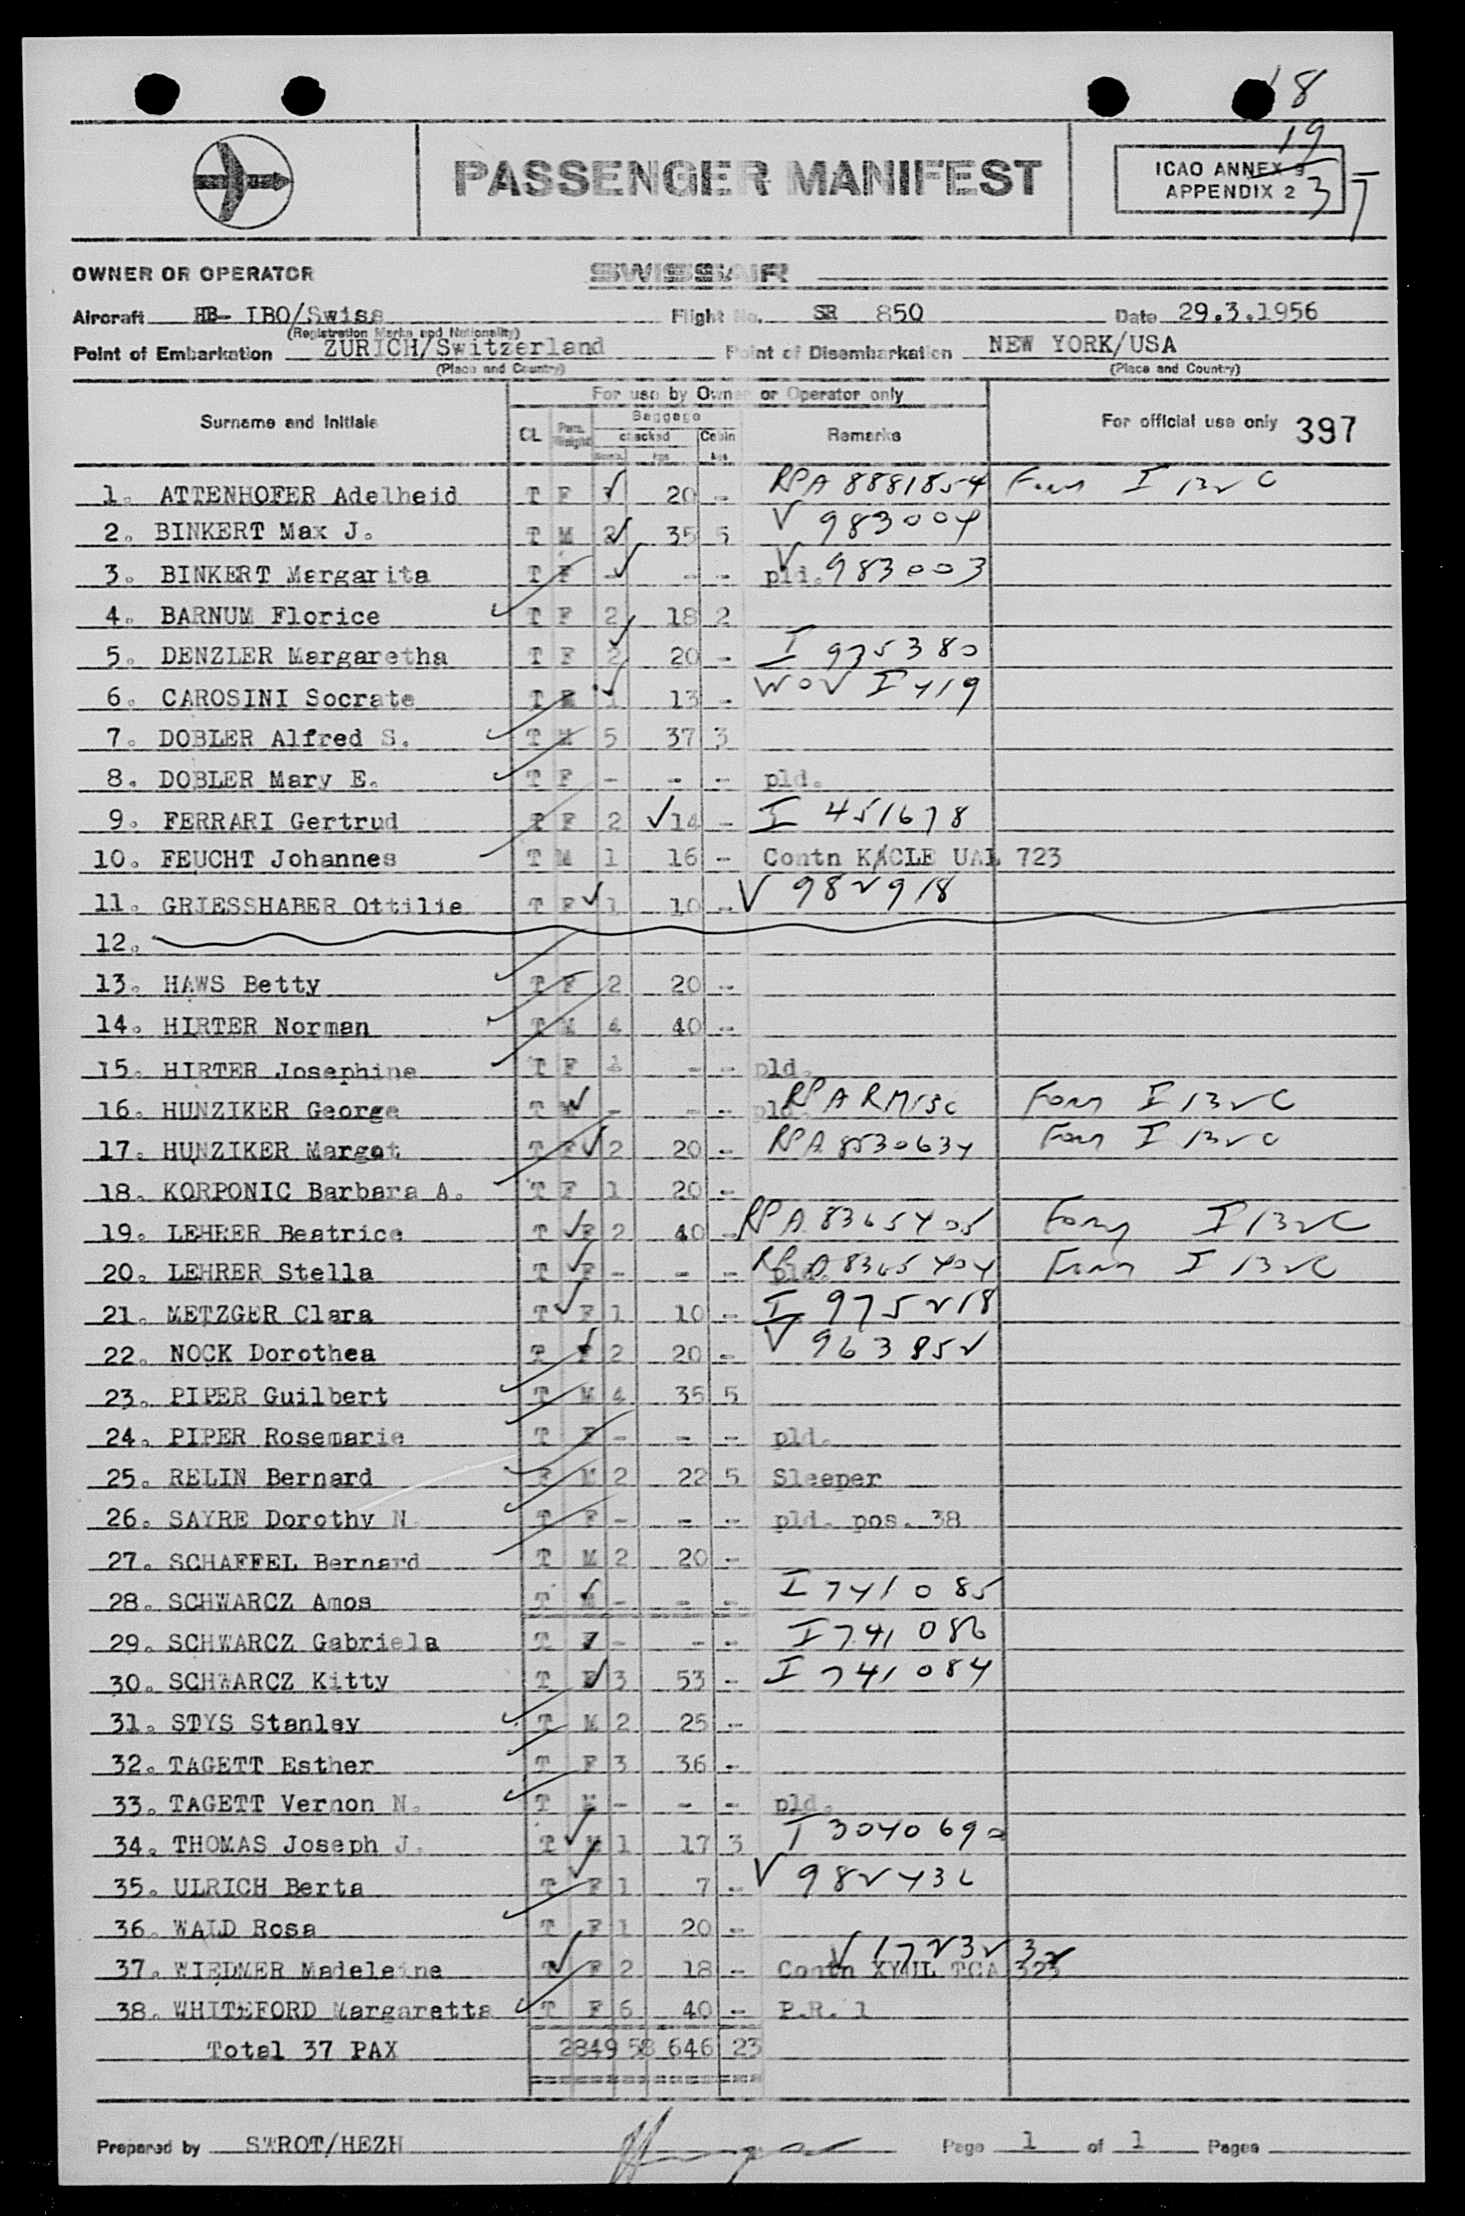 18
19
PASSENGER MANIFEST
ICAO ANNEX 9
APPENDIX 2
37
OWNER OR OPERATOR SWISSAIR
Aircraft HB- IBO/Swiss Flight No. SR 850 Date 29.3.1956
(Registration Marks and Nationality)
Point of Embarkation ZURICH/Switzerland Point of Disembarkation NEW YORK/USA
(Place and Country) (Place and Country)
For use by Owner or Operator only
Surname and Initials CL Pass. Weight Baggage checked Cabin Remarks For official use only 397
Numb. kgs kgs
1. ATTENHOFER Adelheid T F 1 20 - RPA 8881854 Form I 132C
2. BINKERT Max J. T M 2 35 5 V 983004
3. BINKERT Margarita T F - - - pld. V 983003
4. BARNUM Florice T F 2 18 2
5. DENZLER Margaretha T F 2 20 - I 975380
6. CAROSINI Socrate T M 1 13 - WOV I 419
7. DOBLER Alfred S. T M 5 37 3
8. DOBLER Mary E. T F - - - pld.
9. FERRARI Gertrud T F 2 14 - I 451678
10. FEUCHT Johannes T M 1 16 - Contn KACLE UAL 723
11. GRIESSHABER Ottilie T F 1 10 - V 982918
12.
13. HAWS Betty T F 2 20 -
14. HIRTER Norman T M 4 40 -
15. HIRTER Josephine T F - - - pld.
16. HUNZIKER George T M - - - pld. RPA RM13C Form I 132C
17. HUNZIKER Margot T F 2 20 - RPA 8530634 Form I 132C
18. KORPONIC Barbara A. T F 1 20 -
19. LEHRER Beatrice T F 2 40 - RPA 8365405 Form I 132C
20. LEHRER Stella T F - - - pld. RPA 8365404 Form I 132C
21. METZGER Clara T F 1 10 - I 975218
22. NOCK Dorothea T F 2 20 - V 963852
23. PIPER Guilbert T M 4 35 5
24. PIPER Rosemarie T F - - - pld.
25. RELIN Bernard F M 2 22 5 Sleeper
26. SAYRE Dorothy N. T F - - - pld. pos. 38
27. SCHAFFEL Bernard T M 2 20 -
28. SCHWARCZ Amos T M - - - I 741085
29. SCHWARCZ Gabriela T F - - - I 741086
30. SCHWARCZ Kitty T F 3 53 - I 741084
31. STYS Stanley T M 2 25 -
32. TAGETT Esther T F 3 36 -
33. TAGETT Vernon N. T M - - - pld.
34. THOMAS Joseph J. T M 1 17 3 I 3040690
35. ULRICH Berta T F 1 7 - V 982432
36. WALD Rosa T F 1 20 -
37. WIEDMER Madeleine T F 2 18 - Contn XYUL TCA 323 V 1723232
38. WHITEFORD Margaretta T F 6 40 - P.R. 1
Total 37 PAX 2849 58 646 23
Prepared by STROT/HEZH Page 1 of 1 Pages